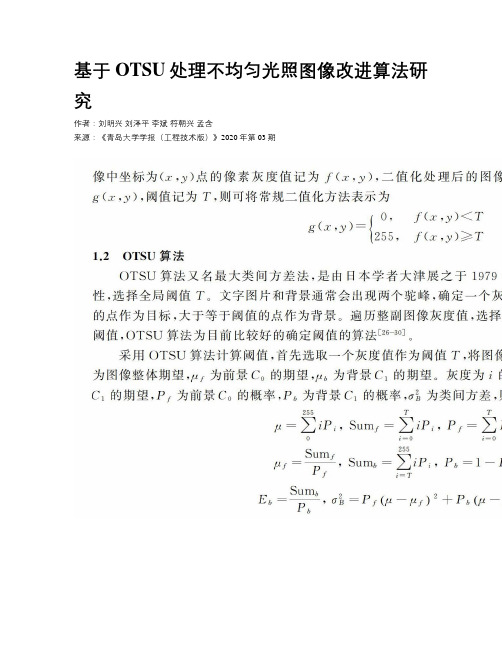 基于 OTSU 处理不均匀光照图像改进算法研
究
作者：刘明兴 刘泽平 李斌 符朝兴 孟含
来源：《青岛大学学报（工程技术版）》2020 年第 03 期
像中坐标为(x,y)点的像素灰度值记为 f(x,y),二值化处理后的图像
g(x,y),阈值记为 T,则可将常规二值化方法表示为
g(x,y)={0, f(x,y)<T
255, f(x,y)≥T
1.2 OTSU 算法
OTSU 算法又名最大类间方差法,是由日本学者大津展之于 1979
性,选择全局阈值 T。文字图片和背景通常会出现两个驼峰,确定一个灰
的点作为目标,大于等于阈值的点作为背景。遍历整副图像灰度值,选择
阈值,OTSU 算法为目前比较好的确定阈值的算法[26-30]。
采用 OTSU 算法计算阈值,首先选取一个灰度值作为阈值 T,将图像
为图像整体期望,μf 为前景 C0 的期望,μb 为背景 C1 的期望。灰度为 i 的
C1 的期望,Pf 为前景 C0 的概率,Pb 为背景 C1 的概率,σ²B 为类间方差,
μ=∑(0→255) iPi, Sumf=∑(i=0→T) iPi, Pf=∑(i=0→T)
μf=Sumf/Pf, Sumb=∑(i=T→255) iPi, Pb=1-
Eb=Sumb/Pb, σ²B=Pf(μ-μf)²+Pb(μ-